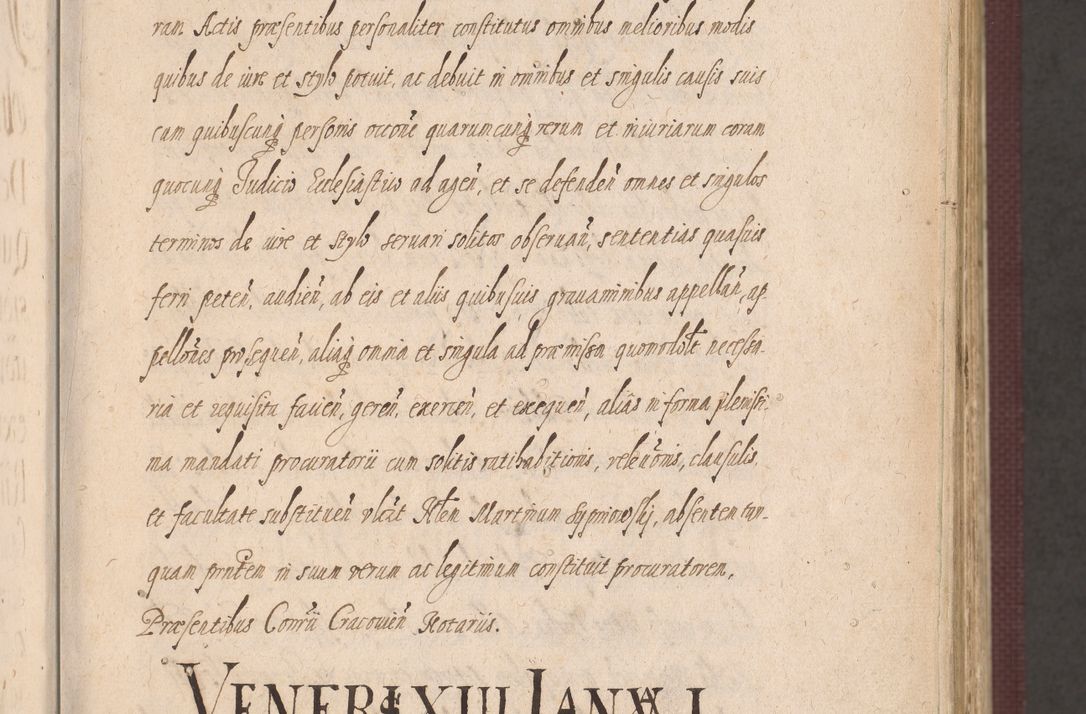 ram Actis præsentibus personaliter constitutus omnibus melioribus modis
quibus de iure et stylo potuit, ac debuit in omnibus et singulis causis suis
cum quibuscunq personis occone quarumcunq rerum et iniuriarum coram
quocunq Judicio Ecclesiastico ad agen, et se defenden omnes et singulos
terminos de iure et stylo servari solitos observan, sententias quasuis
ferri peten, audien, ab eis et aliis quibusuis gravaminibus appellan, ap
pellones prosequen, aliaq omnia et singula ad præmissa quomodolt necessa-
ria et requisita facien, geren, exercen, et exequen, alias in forma plenissi-
ma mandati procuratorii cum solitis ratihabitionis, releuonis, clausulis,
et facultate substituen vlcit Nlem Martinum absentem tan-
quam prntem in suum verum ac legitimum constituit procuratorem,
Præsentibus Conrii Cracovien Notariis.
VENERIS XIII IANVA